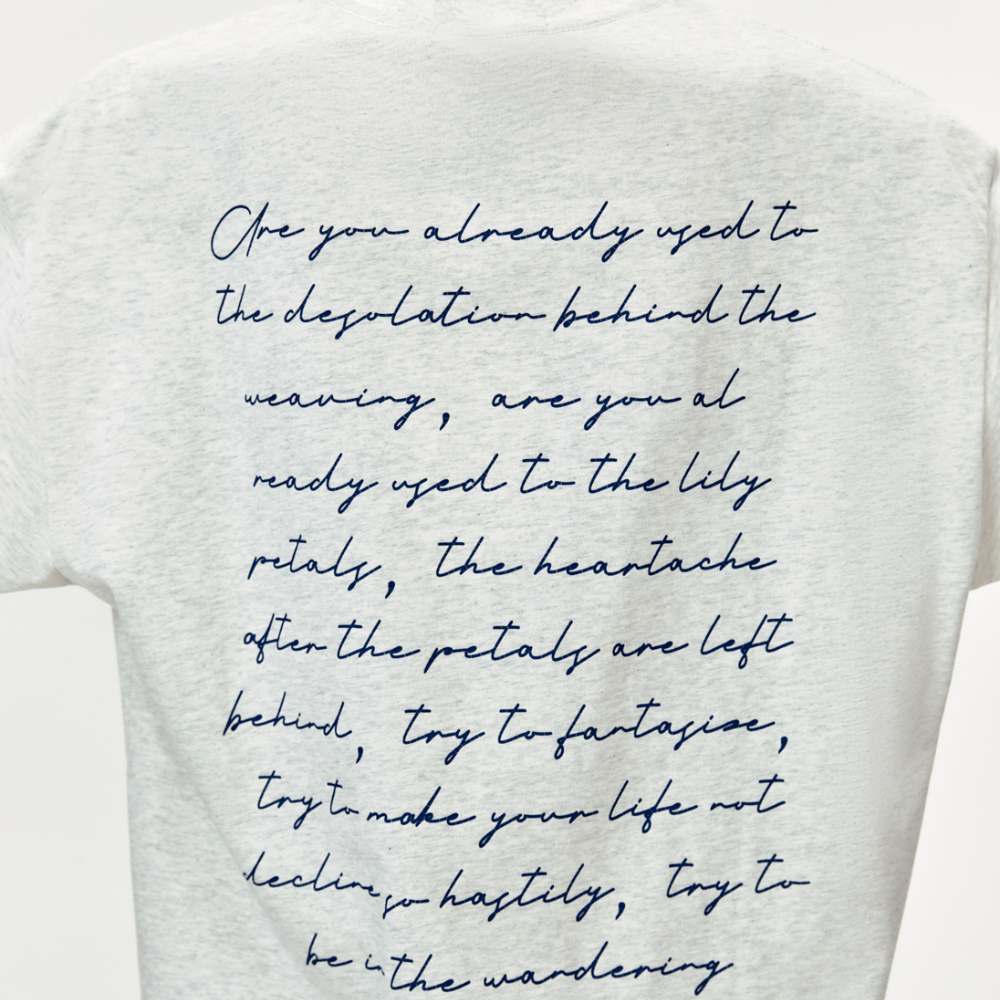 Are you already used to
the desolation behind the
weaving, are you al
ready used to the lily
petals, the heartache
after the petals are left
behind, try to fantasize,
try to make your life not
decline so hastily, try to
be in the wandering